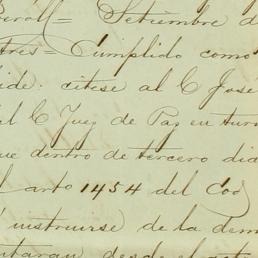 = Setiembre d
tres = Cumplido como
ide: citese al C José
el C Juez de Paz en turn
ue dentro de tercero dia
l arto 1454 del Cod
instruirse de la dem
desde el